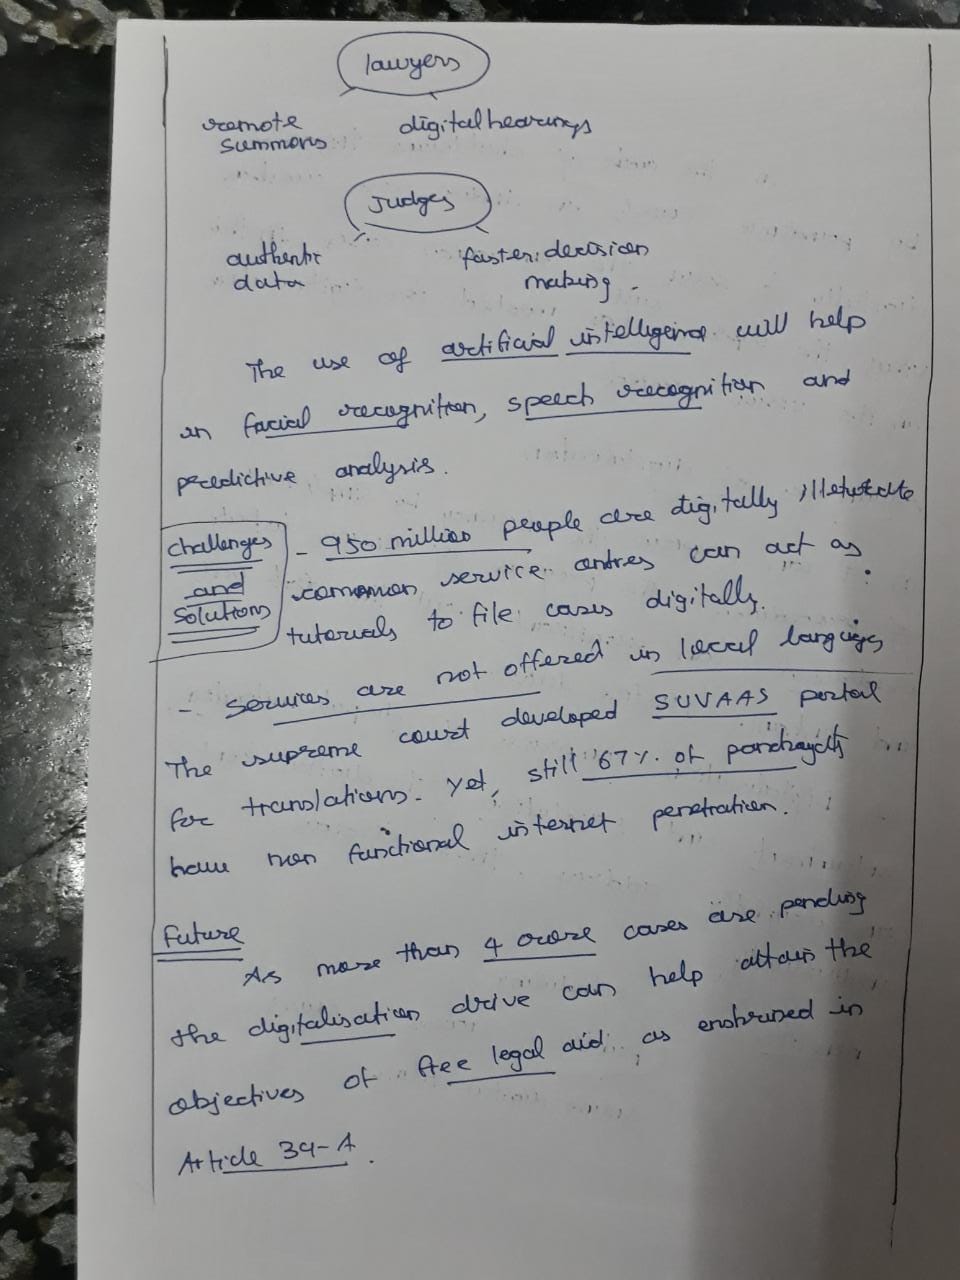 lawyers
remote digital hearings
summons
Judges
authentic faster decision
data making.
The use of artificial intelligence will help
in facial recognition, speech recognition and
predictive analysis.
challenges - 950 million people are digitally illeterate
and common service centres can act as
solutions tutorials to file cases digitally.
- services are not offered in local languages
The supreme court developed SUVAAS portal
for translations. Yet, still 67% of panchayats
have non functional internet penetration.
Future
As more than 4 crore cases are pending
the digitalisation drive can help attain the
objectives of free legal aid as enshrined in
Article 39-A.